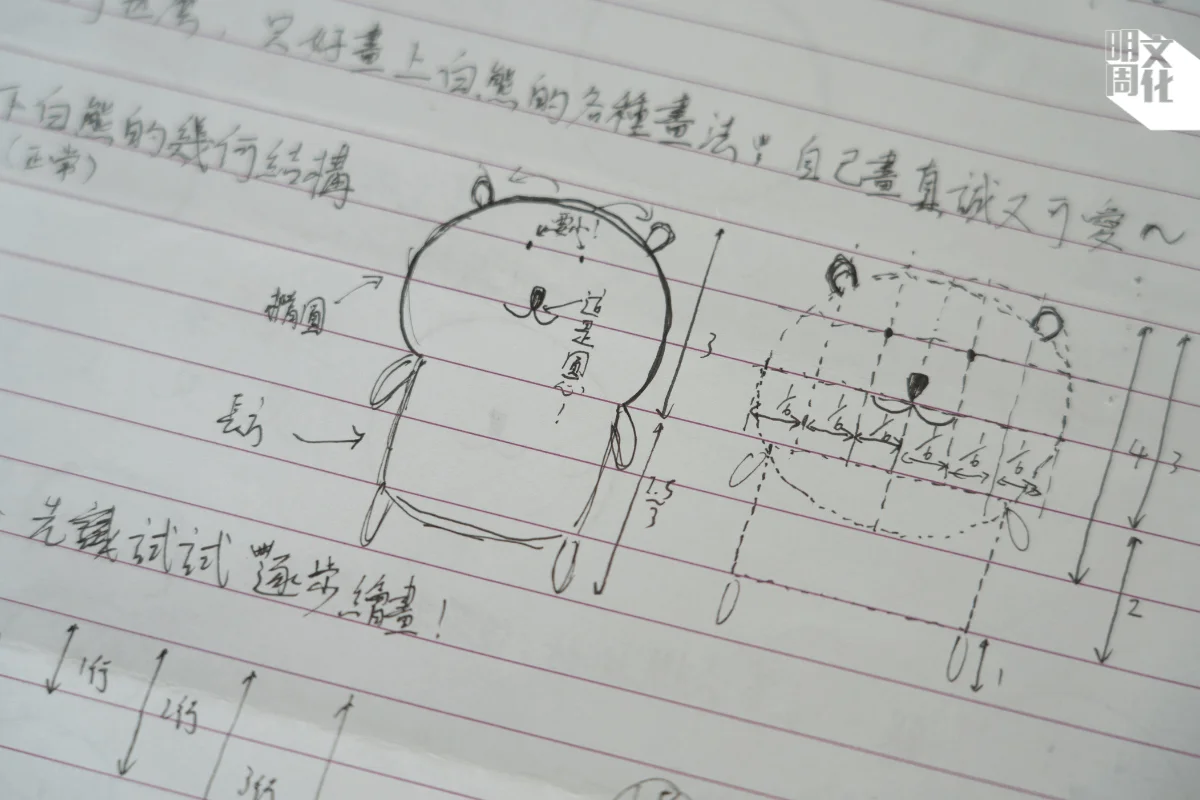 只好畫上白熊的各種畫法!! 自己畫真誠又可愛~
下白熊的幾何結構
(正常)
要小!
橢圓
這是圓心!
長方
3
2.5
3
1/6 1/6 1/6 1/6 1/6 1/6
4
3
2
1
先試試逐步繪畫!
1行
2行
3行
明周文化